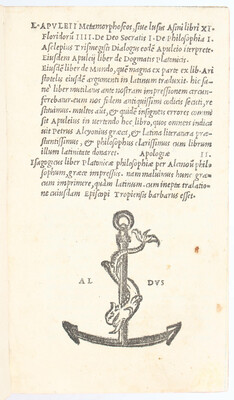 L. APVLEII Metamorphoseos, siue lusus Asini libri XI.
Floridorū IIII. De Deo Socratis I. De Philosophia I.
Asclepius Trismegisti Dialogus eodē Apuleio interprete.
Eiusdem Apuleii liber de Dogmatis Platonicis.
Eiusdē liber de Mundo, quē magna ex parte ex lib. Ari
stotelis eiusdē argumenti in latinum traduxit. hic sa-
nè liber mutilatus ante nostram impressionem circun-
ferebatur. cum nos fidem antiquissimi codicis secuti, re
stituimus. multos aūt, & quidē insigneis errores cōmi-
sit Apuleius in uertendo hoc libro, quos omneis indica-
uit Petrus Alcyonius græcæ, & Latinæ literaturæ præ-
stantissimus, & philosophus clarissimus cum librum
illum latinitate donaret. Apologiæ II.
Isagogicus liber Platonicæ philosophiæ per Alcinoū phi-
losophum, græce impressus. nam maluimus hunc græ-
cum imprimere, quàm latinum. cum inepta tralatio-
ne cuiusdam Episcopi Tropiensis barbarus esset.
AL DVS